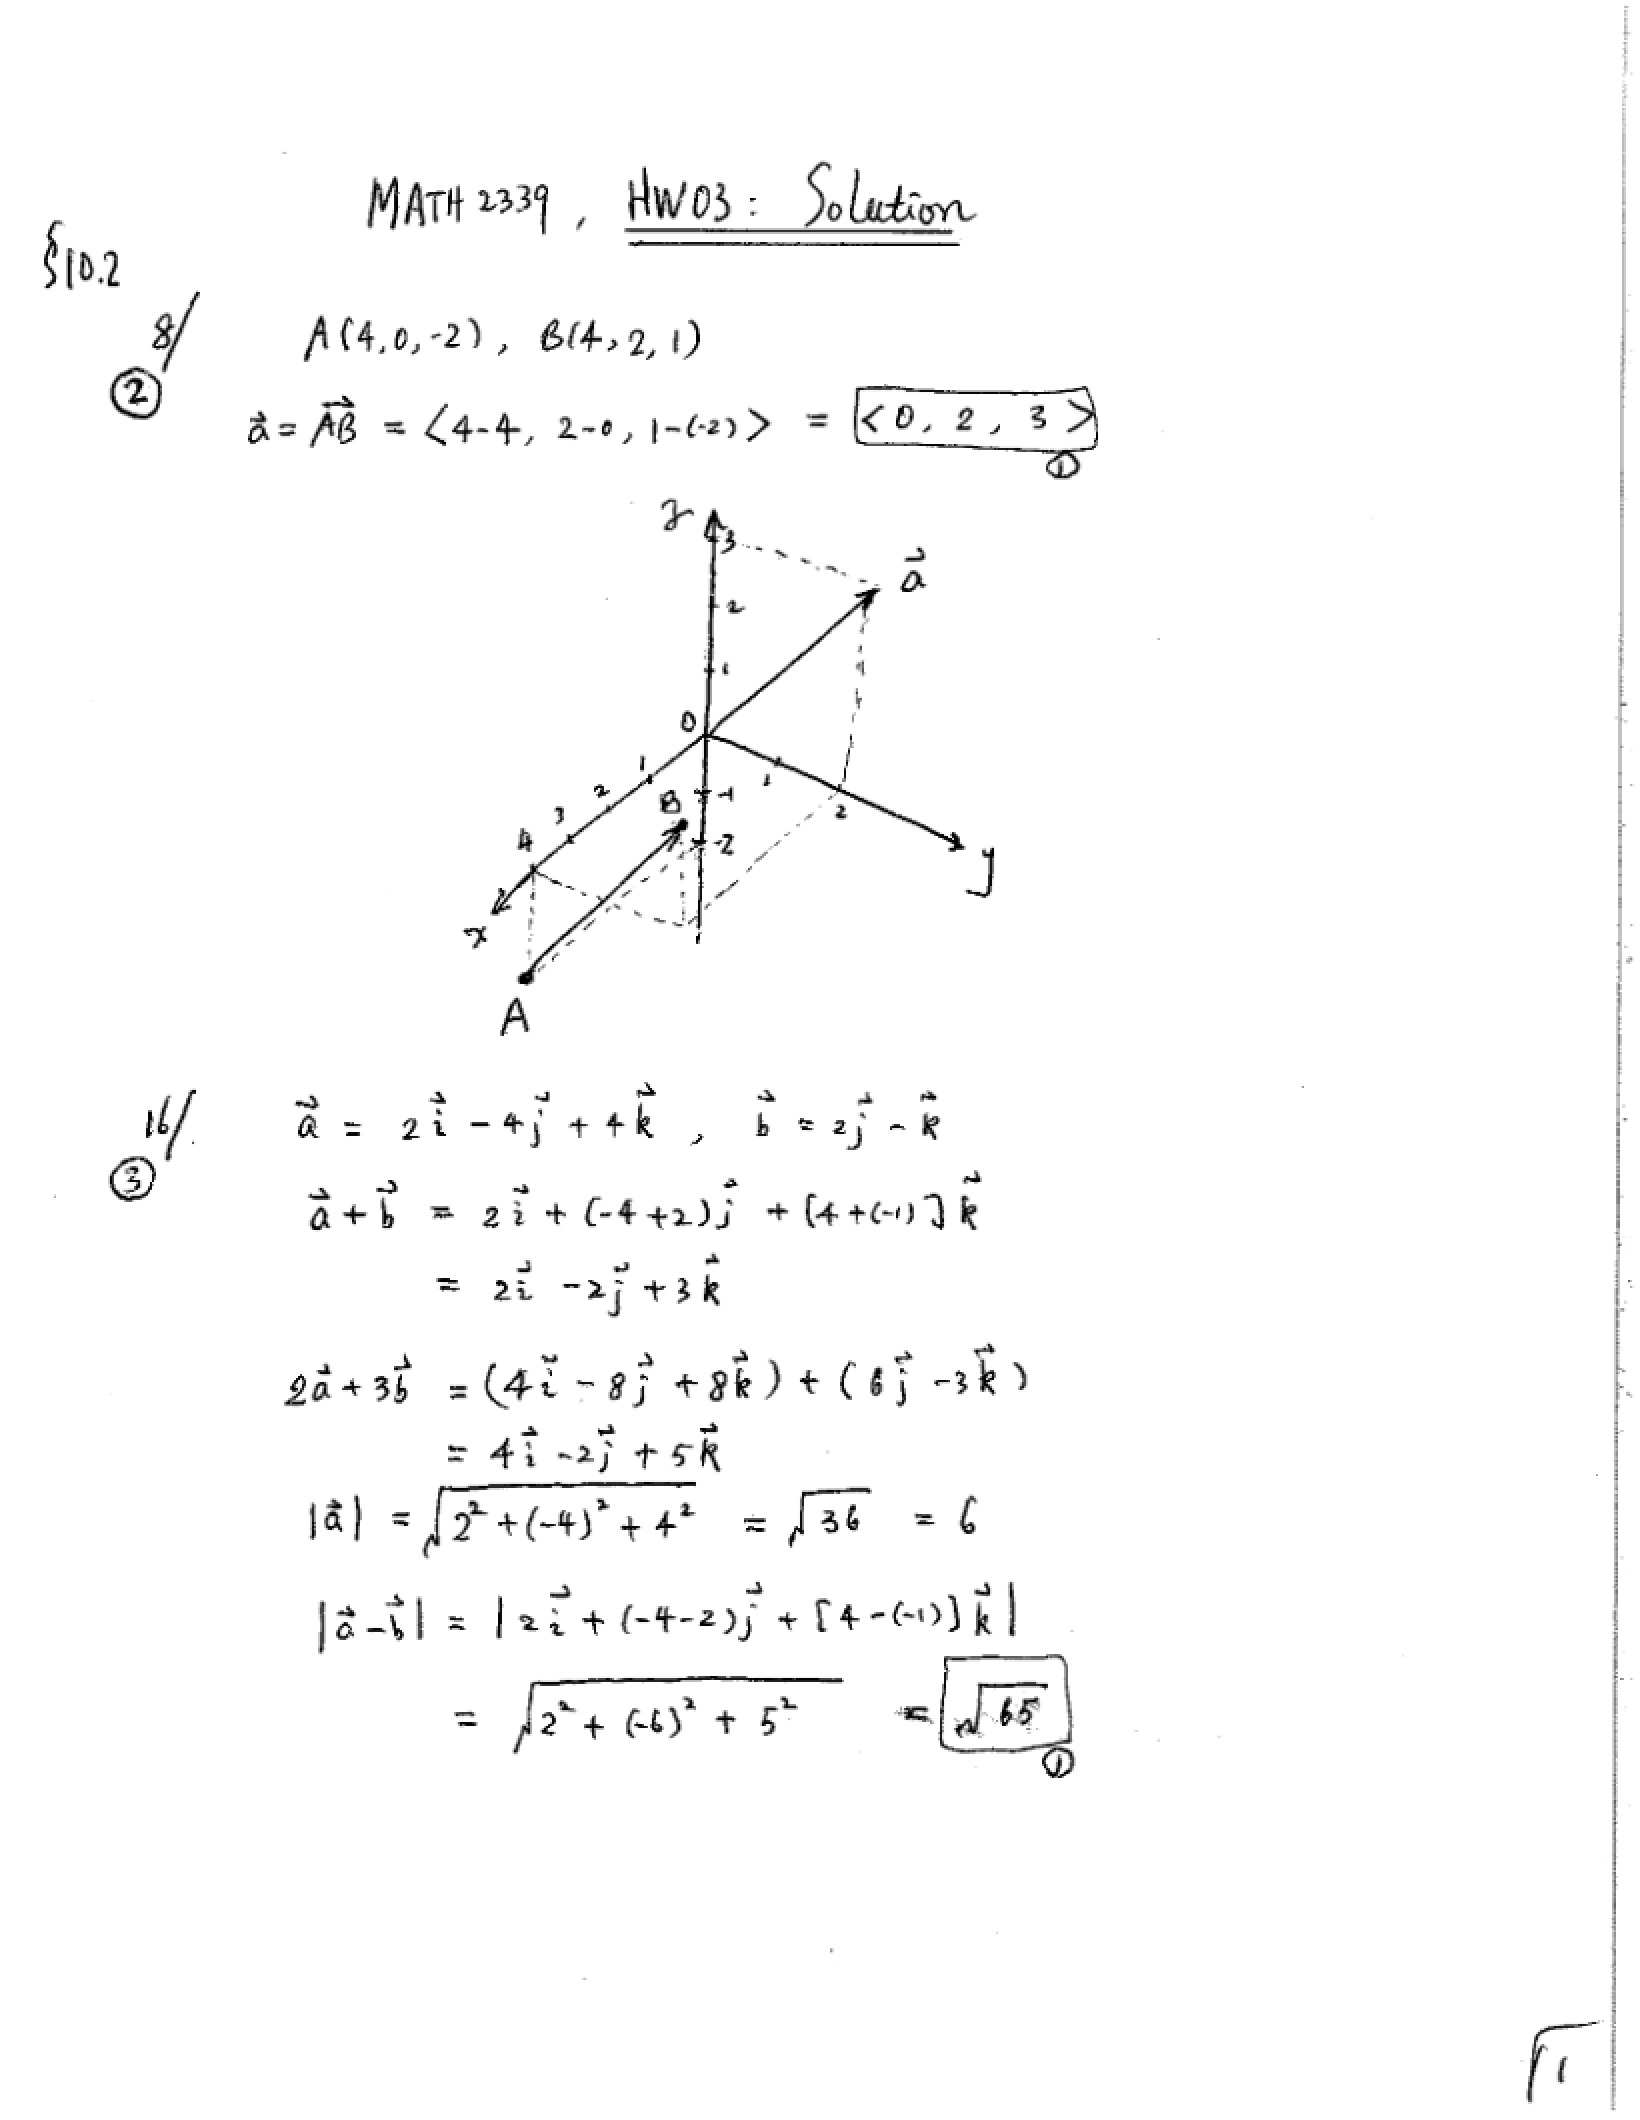 MATH 2339, HW03: Solution
§10.2
8/ A(4,0,-2), B(4,2,1)
②
a⃗ = AB⃗ = <4-4, 2-0, 1-(-2)> = <0, 2, 3>
①
z
3
a⃗
2
1
0
1
1
2
B
-1
2
3
4
-2
y
x
A
16/. a⃗ = 2i⃗ - 4j⃗ + 4k⃗, b⃗ = 2j⃗ - k⃗
③
a⃗ + b⃗ = 2i⃗ + (-4+2)j⃗ + [4+(-1)]k⃗
= 2i⃗ - 2j⃗ + 3k⃗
2a⃗ + 3b⃗ = (4i⃗ - 8j⃗ + 8k⃗) + (6j⃗ - 3k⃗)
= 4i⃗ - 2j⃗ + 5k⃗
|a⃗| = √(2² + (-4)² + 4²) = √36 = 6
|a⃗ - b⃗| = |2i⃗ + (-4-2)j⃗ + [4-(-1)]k⃗|
= √(2² + (-6)² + 5²) = √65
①
1